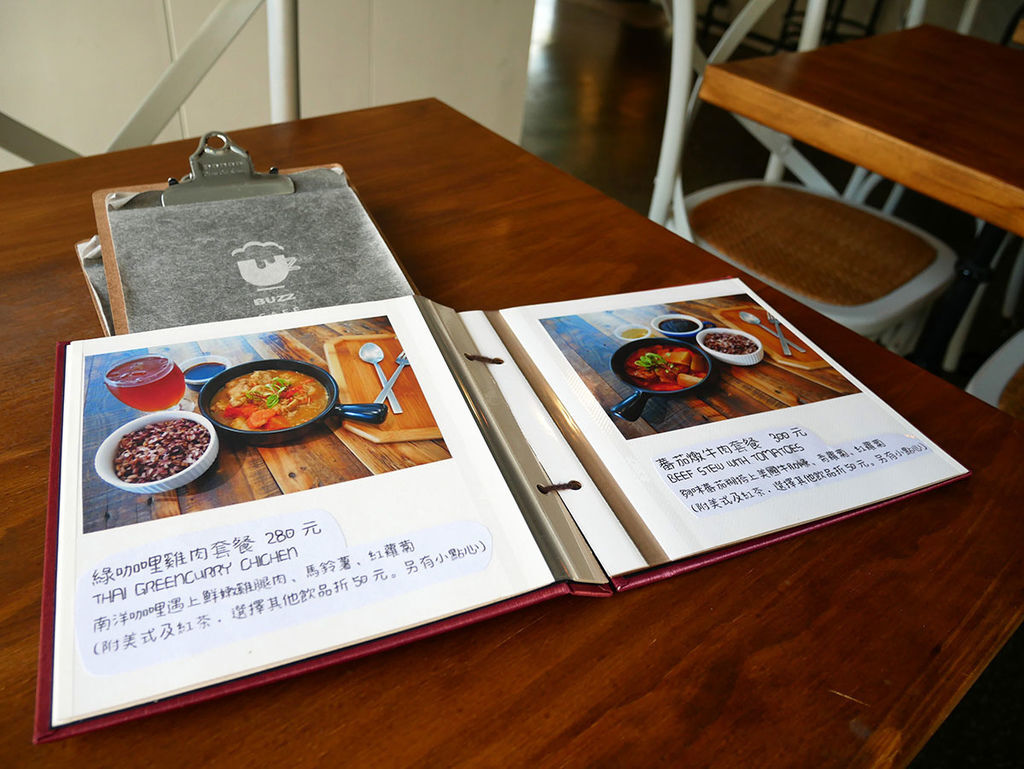 BUZZ
CAFE
綠咖哩雞肉套餐 280 元
THAI GREENCURRY CHICHEN
南洋咖哩遇上鮮嫩雞腿肉、馬鈴薯、紅蘿蔔
(附美式及紅茶，選擇其他飲品折50元。另有小點心)
蕃茄燉牛肉套餐 300 元
BEEF STEW WITH TOMATOES
蕃茄糊搭上美國牛
(附美式及紅茶，選擇其他飲品折50元。另有小點心)